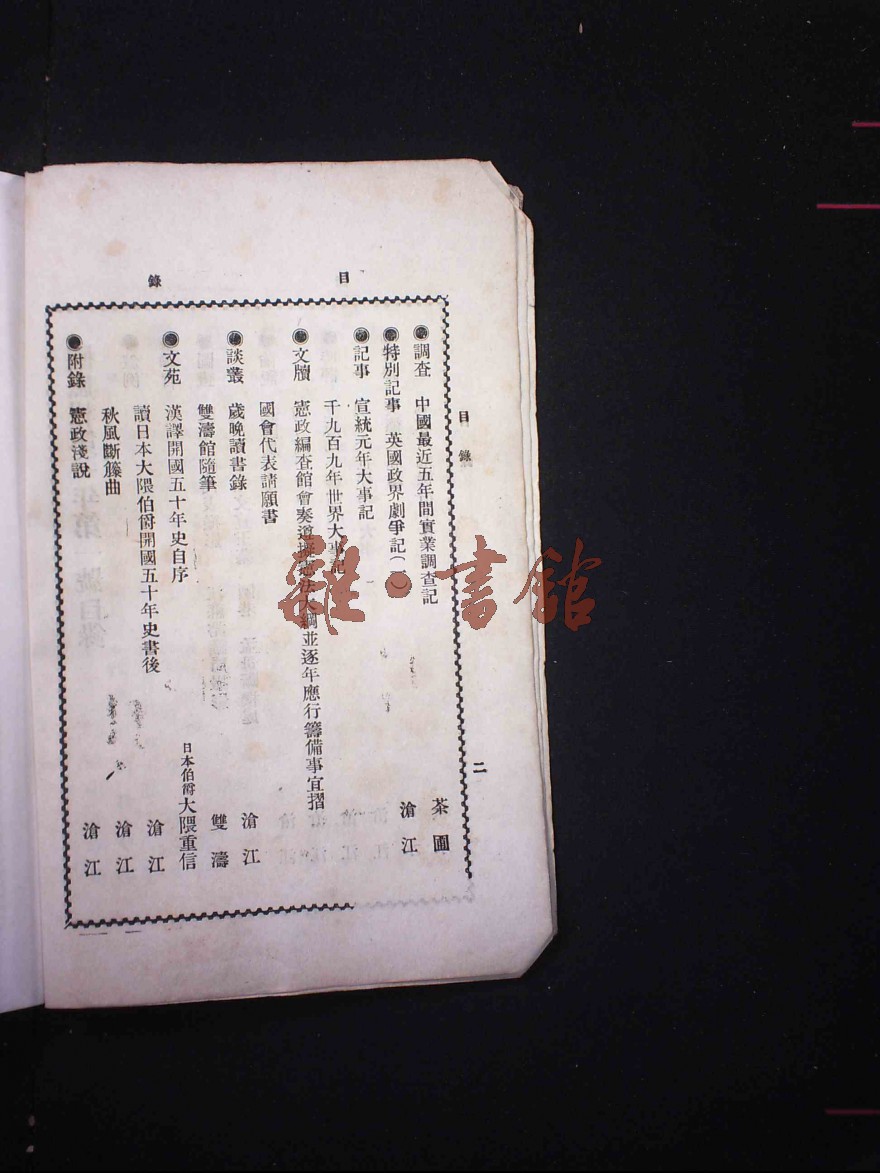 目錄
目錄
二
●調查 中國最近五年間實業調查記 茶圃
●特別記事 英國政界劇爭記(一) 滄江
●記事 宣統元年大事記
千九百九年世界大事記
●文牘 憲政編查館會奏遵擬憲法大綱並逐年應行籌備事宜摺
國會代表請願書
●談叢 歲晚讀書錄 滄江
雙濤館隨筆 雙濤
●文苑 漢譯開國五十年史自序 日本伯爵大隈重信
讀日本大隈伯爵開國五十年史書後 滄江
秋風斷籐曲 滄江
●附錄 憲政淺說 滄江
雜·書館